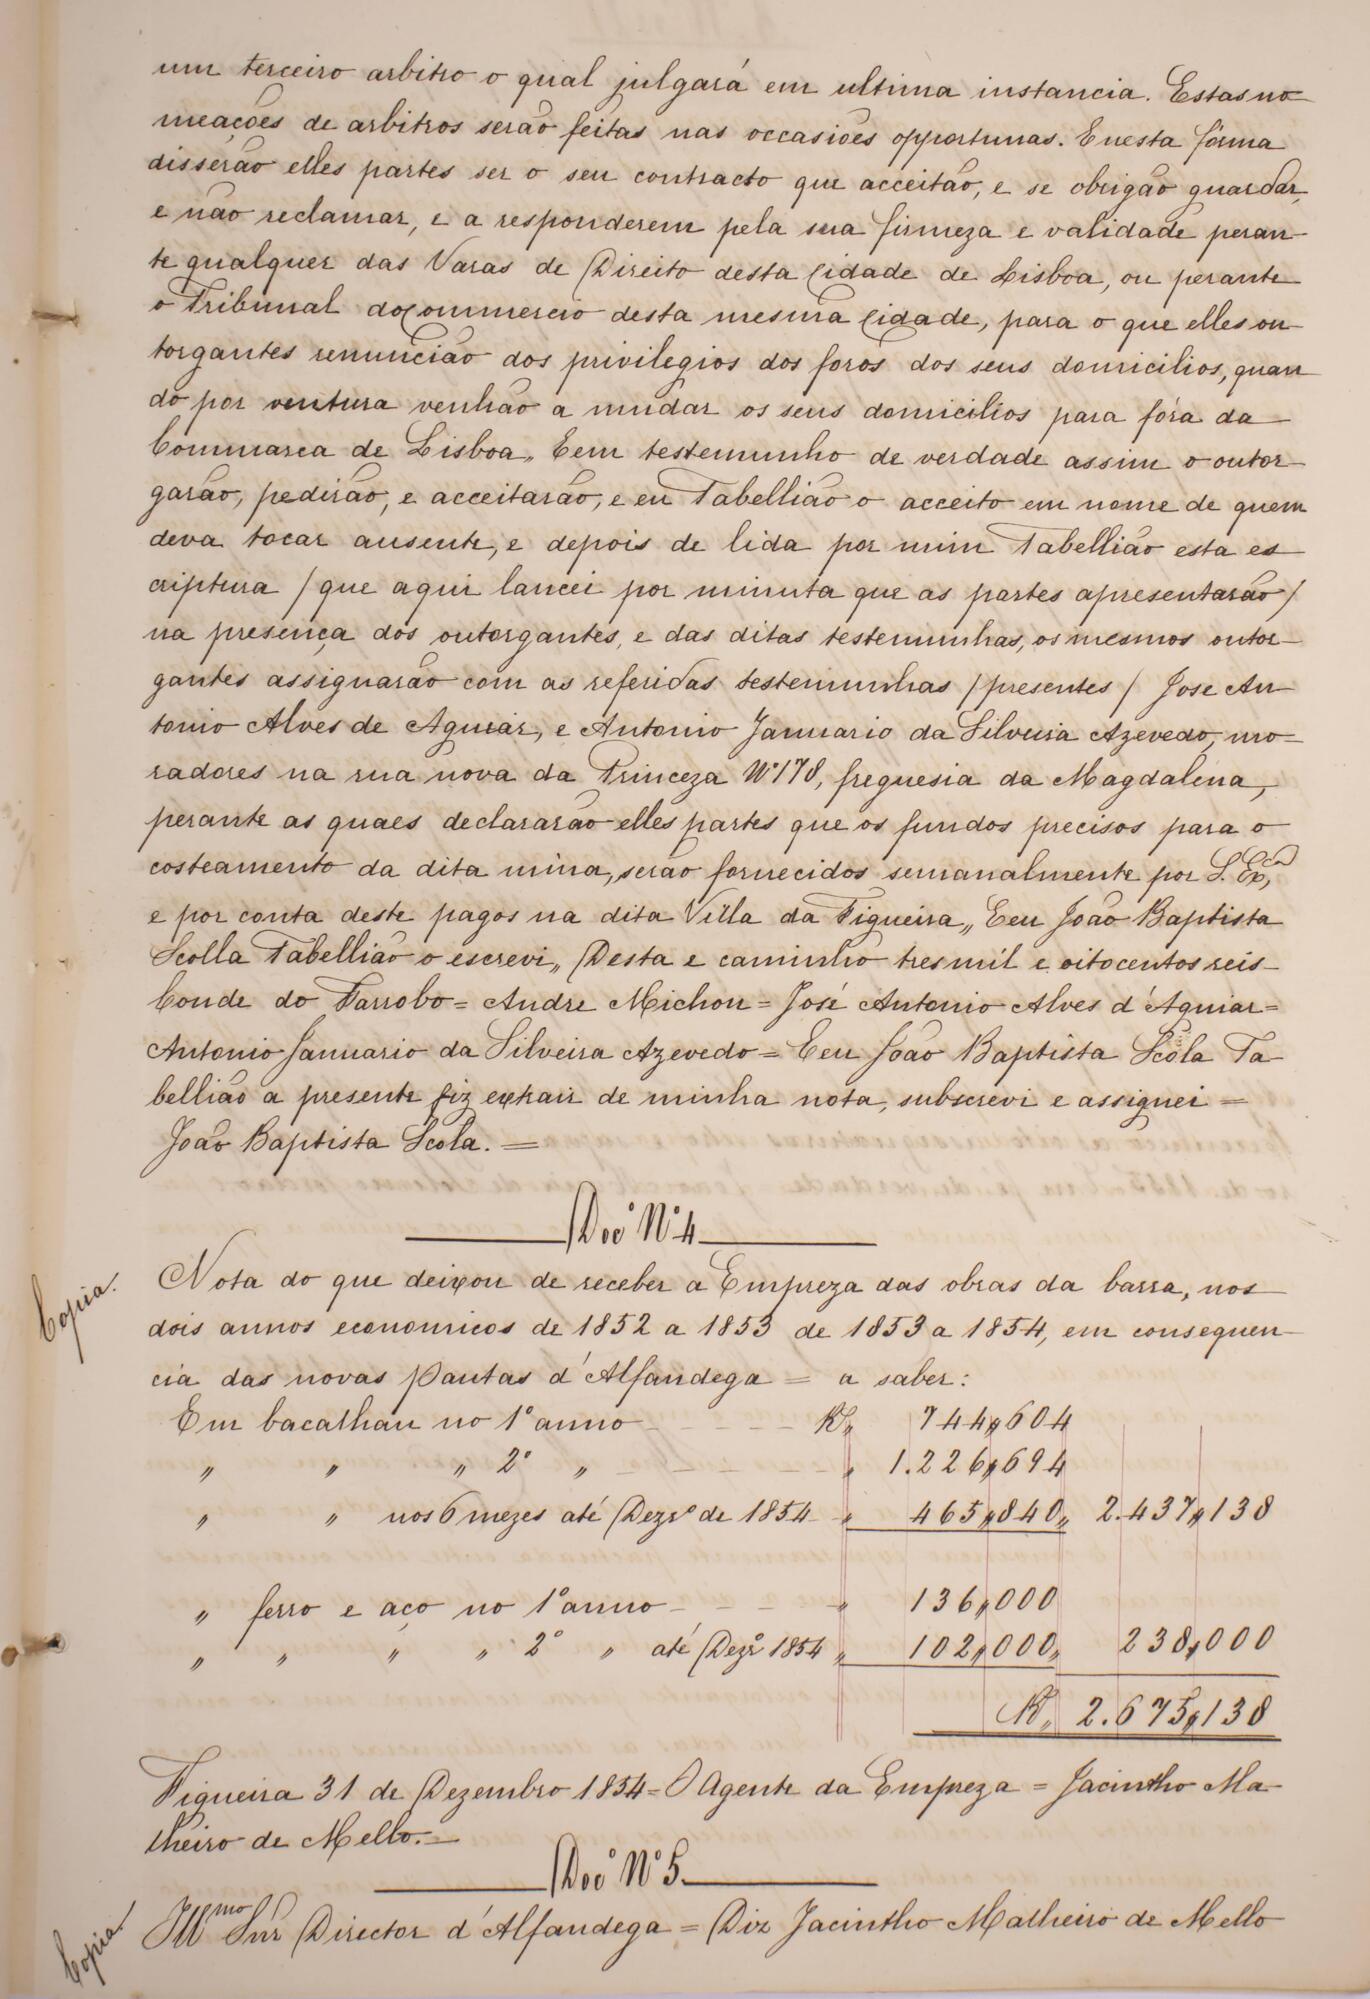 um terceiro arbitro o qual julgará em ultima instancia. Estas no-
meações de arbitros serão feitas nas occasiões opportunas. E nesta fórma
disserão elles partes ser o seu contracto que acceitão, e se obrigão guardar,
e não reclamar, e a responderem pela sua firmeza e validade peran-
te qualquer das Varas de Direito desta Cidade de Lisboa, ou perante
o Tribunal do Commercio desta mesma Cidade, para o que elles ou-
torgantes renuncião dos privilegios dos foros dos seus domicilios, quan
do por ventura venhão a mudar os seus domicilios para fóra da
Commarca de Lisboa,, E em testemunho de verdade assim o outor-
garão, pedirão, e acceitarão, e eu Tabellião o acceito em nome de quem
deva tocar ausente, e depois de lida por mim Tabellião esta es
criptura / que aqui lancei por minuta que as partes apresentarão /
na presença dos outorgantes, e das ditas testemunhas, os mesmos outor-
gantes assignarão com as referidas testemunhas / presentes / Jose An-
tonio Alves de Aguiar, e Antonio Januario da Silveira Azevedo, mo-
radores na rua nova da Princeza Nº 178, freguesia da Magdalena,
perante as quaes declararão elles partes que os fundos precisos para o
costeamento da dita mina, serão fornecidos semanalmente por S. Exª,
e por conta deste pagos na dita Villa da Figueira,, E eu João Baptista
Scolla Tabellião o escrevi,, Desta e caminho tres mil e oitocentos reis-
Conde do Farrobo = Andre Michon = José Antonio Alves d'Aguiar =
Antonio Januario da Silveira Azevedo = E eu João Baptista Scola Ta-
bellião a presente fiz extrair de minha nota, subscrevi e assignei =
João Baptista Scola. =
Docº Nº 4
Copia.
Nota do que deixou de receber a Empreza das obras da barra, nos
dois annos economicos de 1852 a 1853 de 1853 a 1854, em consequen-
cia das novas Pautas d'Alfandega = a saber:
Em bacalhau no 1º anno - - - - - Rs,, 744,,604
,, ,, ,, 2º ,, - - - - - ,, 1.226,,694
,, ,, nos 6 mezes até Dezrº de 1854 - ,, 465,,840,, 2.437,,138
,, ferro e aço no 1º anno - - - - ,, 136,,000
,, ,, ,, ,, 2º ,, até Dezrº 1854 ,, 102,,000,, 238,,000
Rs,, 2.675,,138
Figueira 31 de Dezembro 1854 = O Agente da Empreza = Jacintho Ma-
lheiro de Mello. =
Docº Nº 5.
Copia.
Illmo Snr Director d'Alfandega = Diz Jacintho Malheiro de Mello